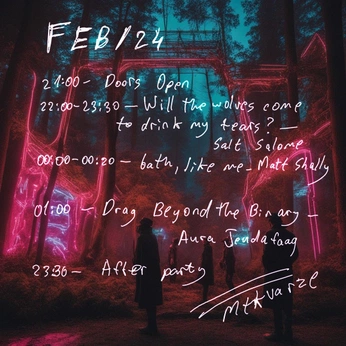 FEB/24
21:00 - Doors Open
22:00-23:30 - Will the wolves come
to drink my tears? -
Salt Salome
00:00-00:20 - bath, like me - Matt Shally
01:00 - Drag Beyond the Binary -
Aura Jendafaag
23:30 - After party
Mtkvarze